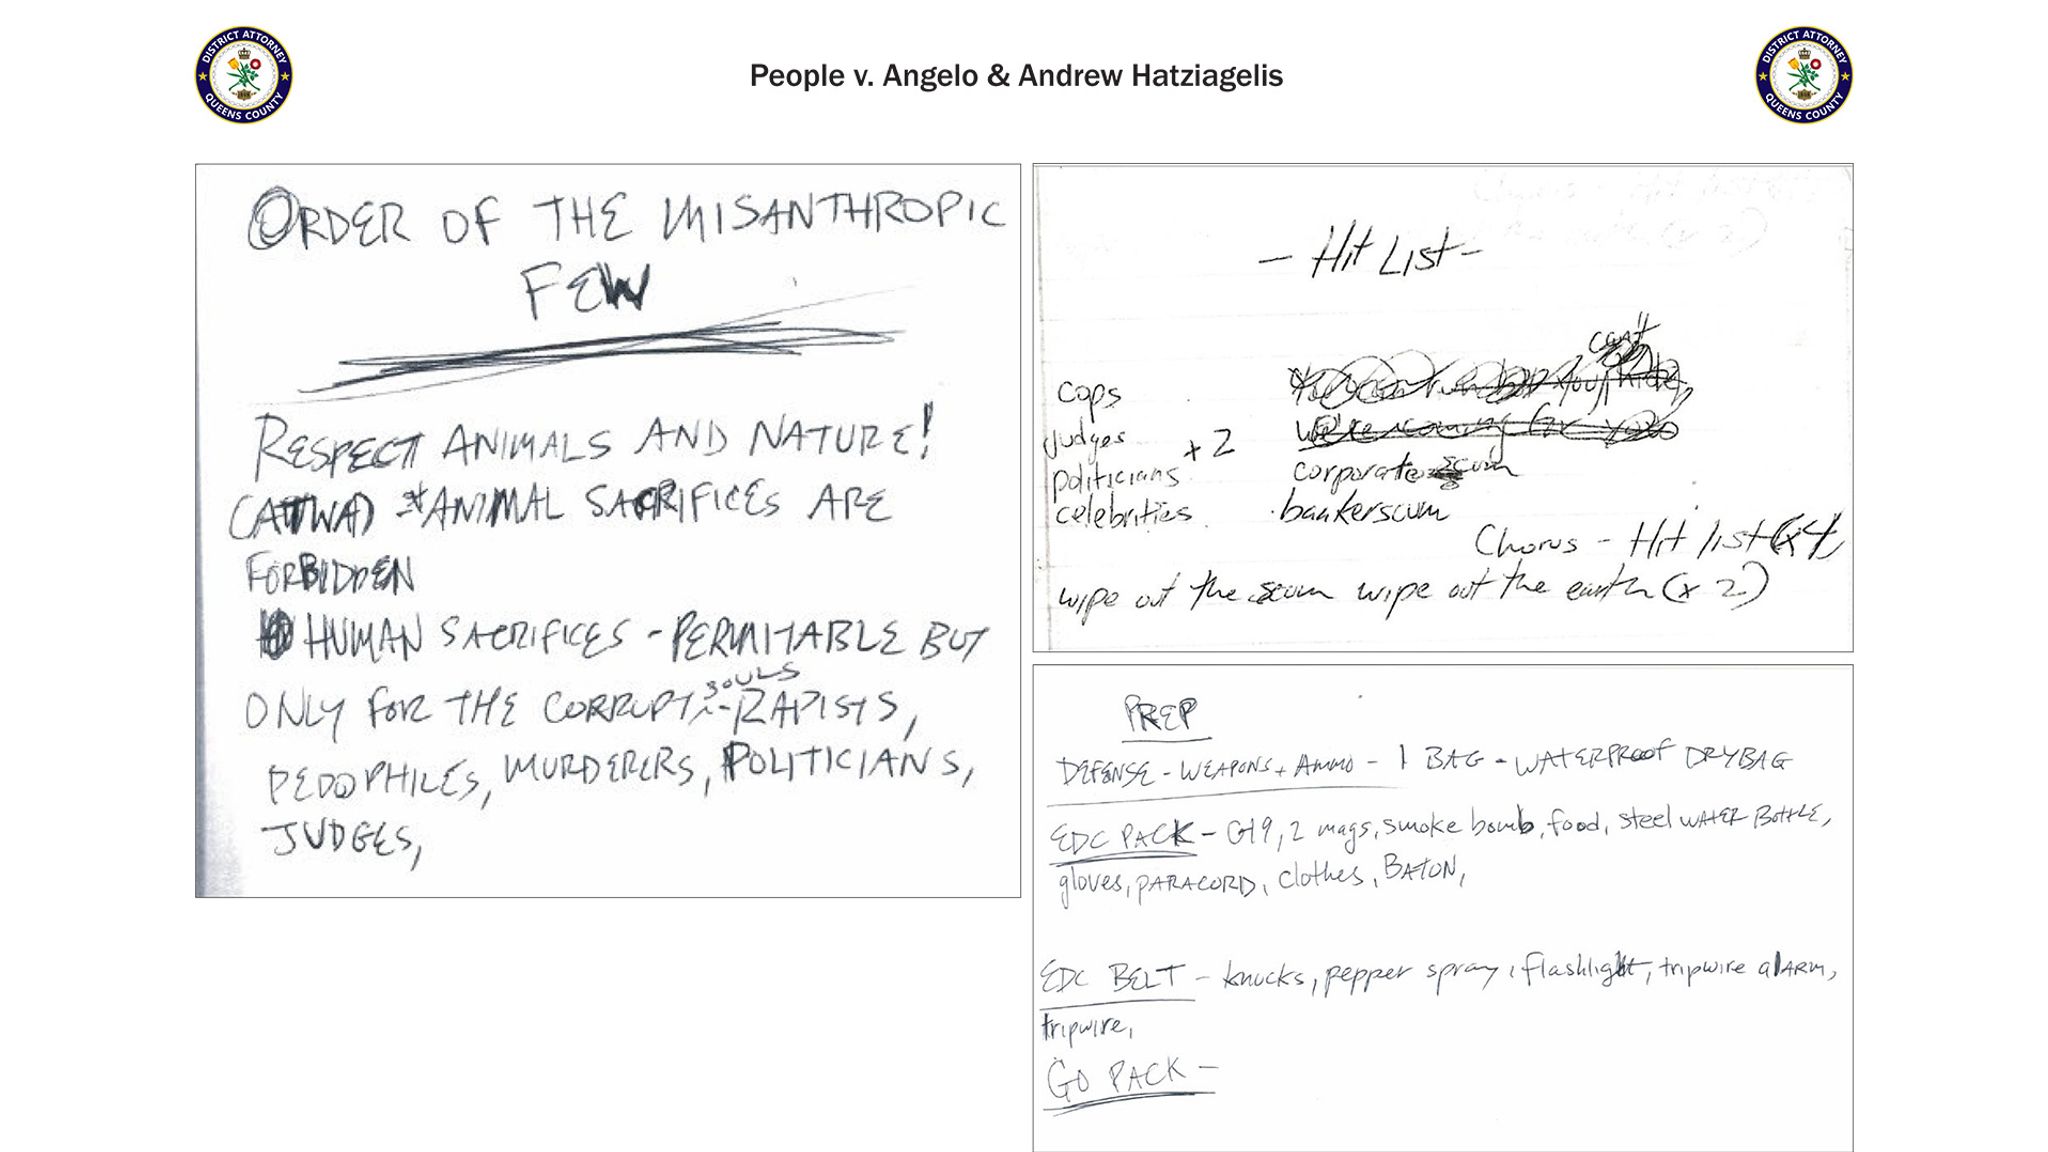 DISTRICT ATTORNEY
QUEENS COUNTY
People v. Angelo & Andrew Hatziagelis
DISTRICT ATTORNEY
QUEENS COUNTY
ORDER OF THE MISANTHROPIC
FEW
RESPECT ANIMALS AND NATURE!
ANIMAL SACRIFICES ARE
FORBIDDEN
HUMAN SACRIFICES - PERMITABLE BUT
SOULS
ONLY FOR THE CORRUPT - RAPISTS,
PEDOPHILES, MURDERERS, POLITICIANS,
JUDGES,
- Hit List -
can't
cops
you hide
Judges + 2 We're coming for you
politicians corporate scum
celebrities bankerscum
Chorus - Hit list (x4)
wipe out the scum wipe out the earth (x 2)
PREP
DEFENSE - WEAPONS + AMMO - 1 BAG - WATERPROOF DRYBAG
EDC PACK - G19, 2 mags, smoke bomb, food, steel WATER BOTTLE,
gloves, PARACORD, clothes, BATON,
EDC BELT - knucks, pepper spray, flashlight, tripwire alARM,
tripwire,
GO PACK -